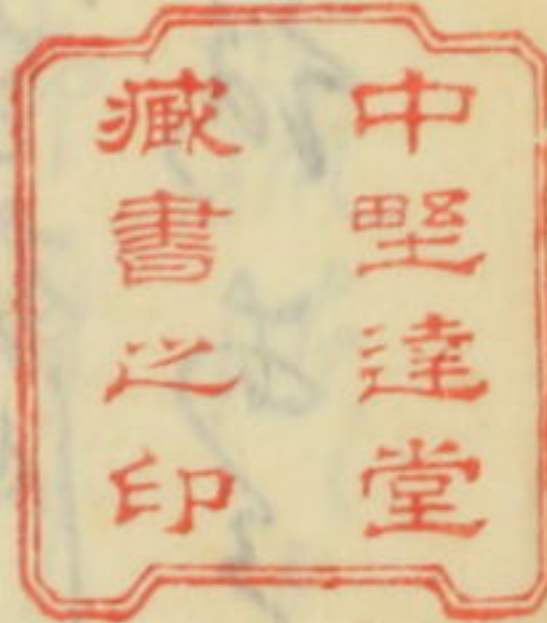 中野達堂
藏書之印